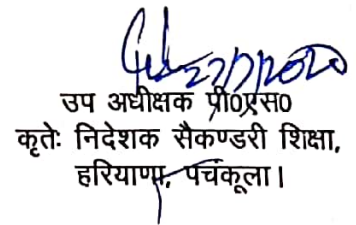 22/7/2020
उप अधीक्षक प्री०एस०
कृतेः निदेशक सैकण्डरी शिक्षा,
हरियाणा, पंचकूला।